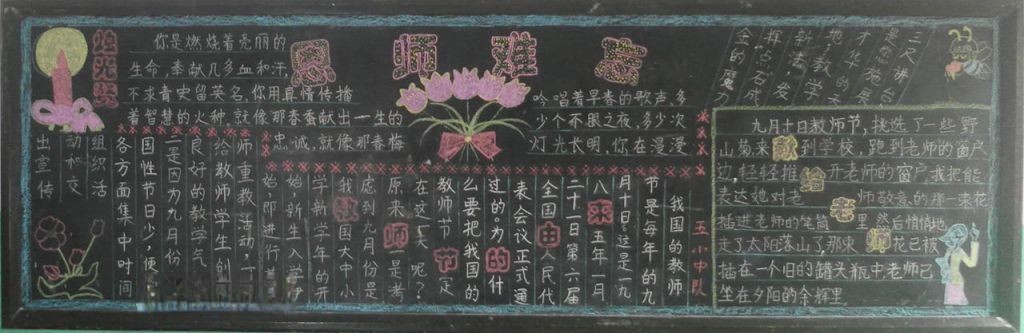 恩师难忘
烛光赞
你是燃烧着亮丽的
生命,奉献几多血和汗,
不求青史留英名,你用真情传播
着智慧的火种,就像那春蚕献出一生的
忠诚,就像那春梅
吟唱着早春的歌声,多
少个不眠之夜,多少次
灯光长明,你在漫漫
三尺讲台
是您施展
才华的天
地,教学
新秀,发
挥点石成
金的魔力
五小中队
教师节的由来
我国的教师
节是每年的九
月十日。这是一九
八五年一月
二十一日第六届
全国人民代
表会议正式通
过的。为什
么要把我国的
教师节定
在这一天呢?
原来是考
虑到九月份是
我国大中小
学新学年的开
始,新生入学伊
始,即进行尊
师重教活动,可
给教师学生创
良好的教学气
二是因为九月份
国性节日少,便
各方面集中时间
组织活
动和交
出宣传
献给老师
九月十日教师节,挑选了一些野
山菊来到学校,跑到老师的窗户
边,轻轻推开老师的窗户我把能
表达她对老师敬意的一束花
插进老师的笔筒里然后悄悄地
走了太阳落山了那束花已被
插在一个旧的罐头瓶中老师已
坐在夕阳的余辉里